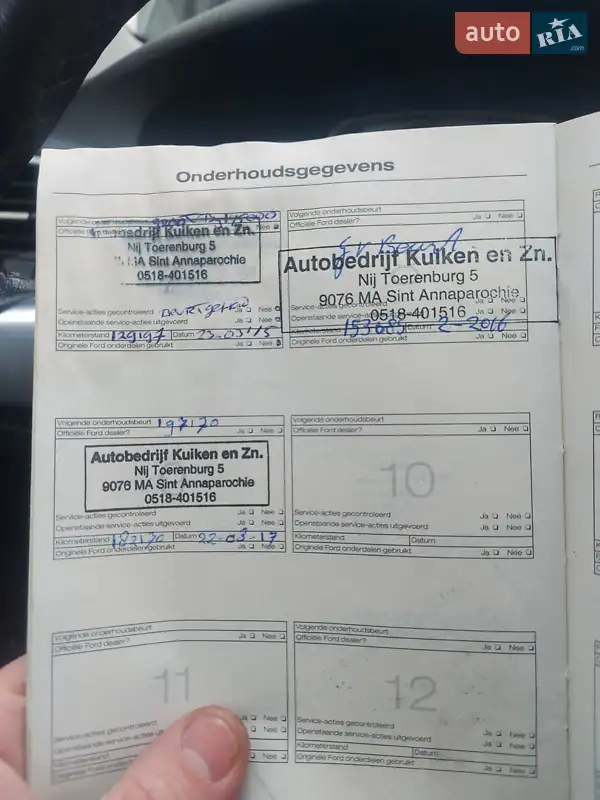 auto RIA .com
Onderhoudsgegevens
Volgende onderhoudsbeurt
Officiële
Nee
Autobedrijf Kuiken en Zn.
Nij Toerenburg 5
MA Sint Annaparochie
0518-401516
Service-acties gecontroleerd Ja Nee
Openstaande service-acties uitgevoerd Ja Nee
Kilometerstand 129197 Datum 23-03-'15
Originele Ford onderdelen gebruikt Ja Nee
Volgende onderhoudsbeurt
Officiële Ford dealer? Ja Nee
Autobedrijf Kuiken en Zn.
Nij Toerenburg 5
9076 MA Sint Annaparochie
0518-401516
Service-acties gecontroleerd Ja Nee
Openstaande service-acties
Kilometerstand 153685 Datum 2-2016
Originele Ford onderdelen gebruikt Ja Nee
Volgende onderhoudsbeurt 197170
Officiële Ford dealer? Ja Nee
Autobedrijf Kuiken en Zn.
Nij Toerenburg 5
9076 MA Sint Annaparochie
0518-401516
Service-acties gecontroleerd Ja Nee
Openstaande service-acties uitgevoerd Ja Nee
Kilometerstand 182170 Datum 22-03-17
Originele Ford onderdelen gebruikt Ja Nee
Volgende onderhoudsbeurt
Officiële Ford dealer? Ja Nee
10
Service-acties gecontroleerd Ja Nee
Openstaande service-acties uitgevoerd Ja Nee
Kilometerstand Datum
Originele Ford onderdelen gebruikt Ja Nee
Volgende onderhoudsbeurt
Officiële Ford dealer? Ja Nee
11
Service-acties gecontroleerd Ja Nee
Openstaande service-acties
Kilometerstand
Originele Ford onderdelen
Volgende onderhoudsbeurt
Officiële Ford dealer? Ja Nee
12
Service-acties gecontroleerd Ja Nee
Openstaande service-acties uitgevoerd Ja Nee
Kilometerstand Datum
Originele Ford onderdelen gebruikt Ja Nee